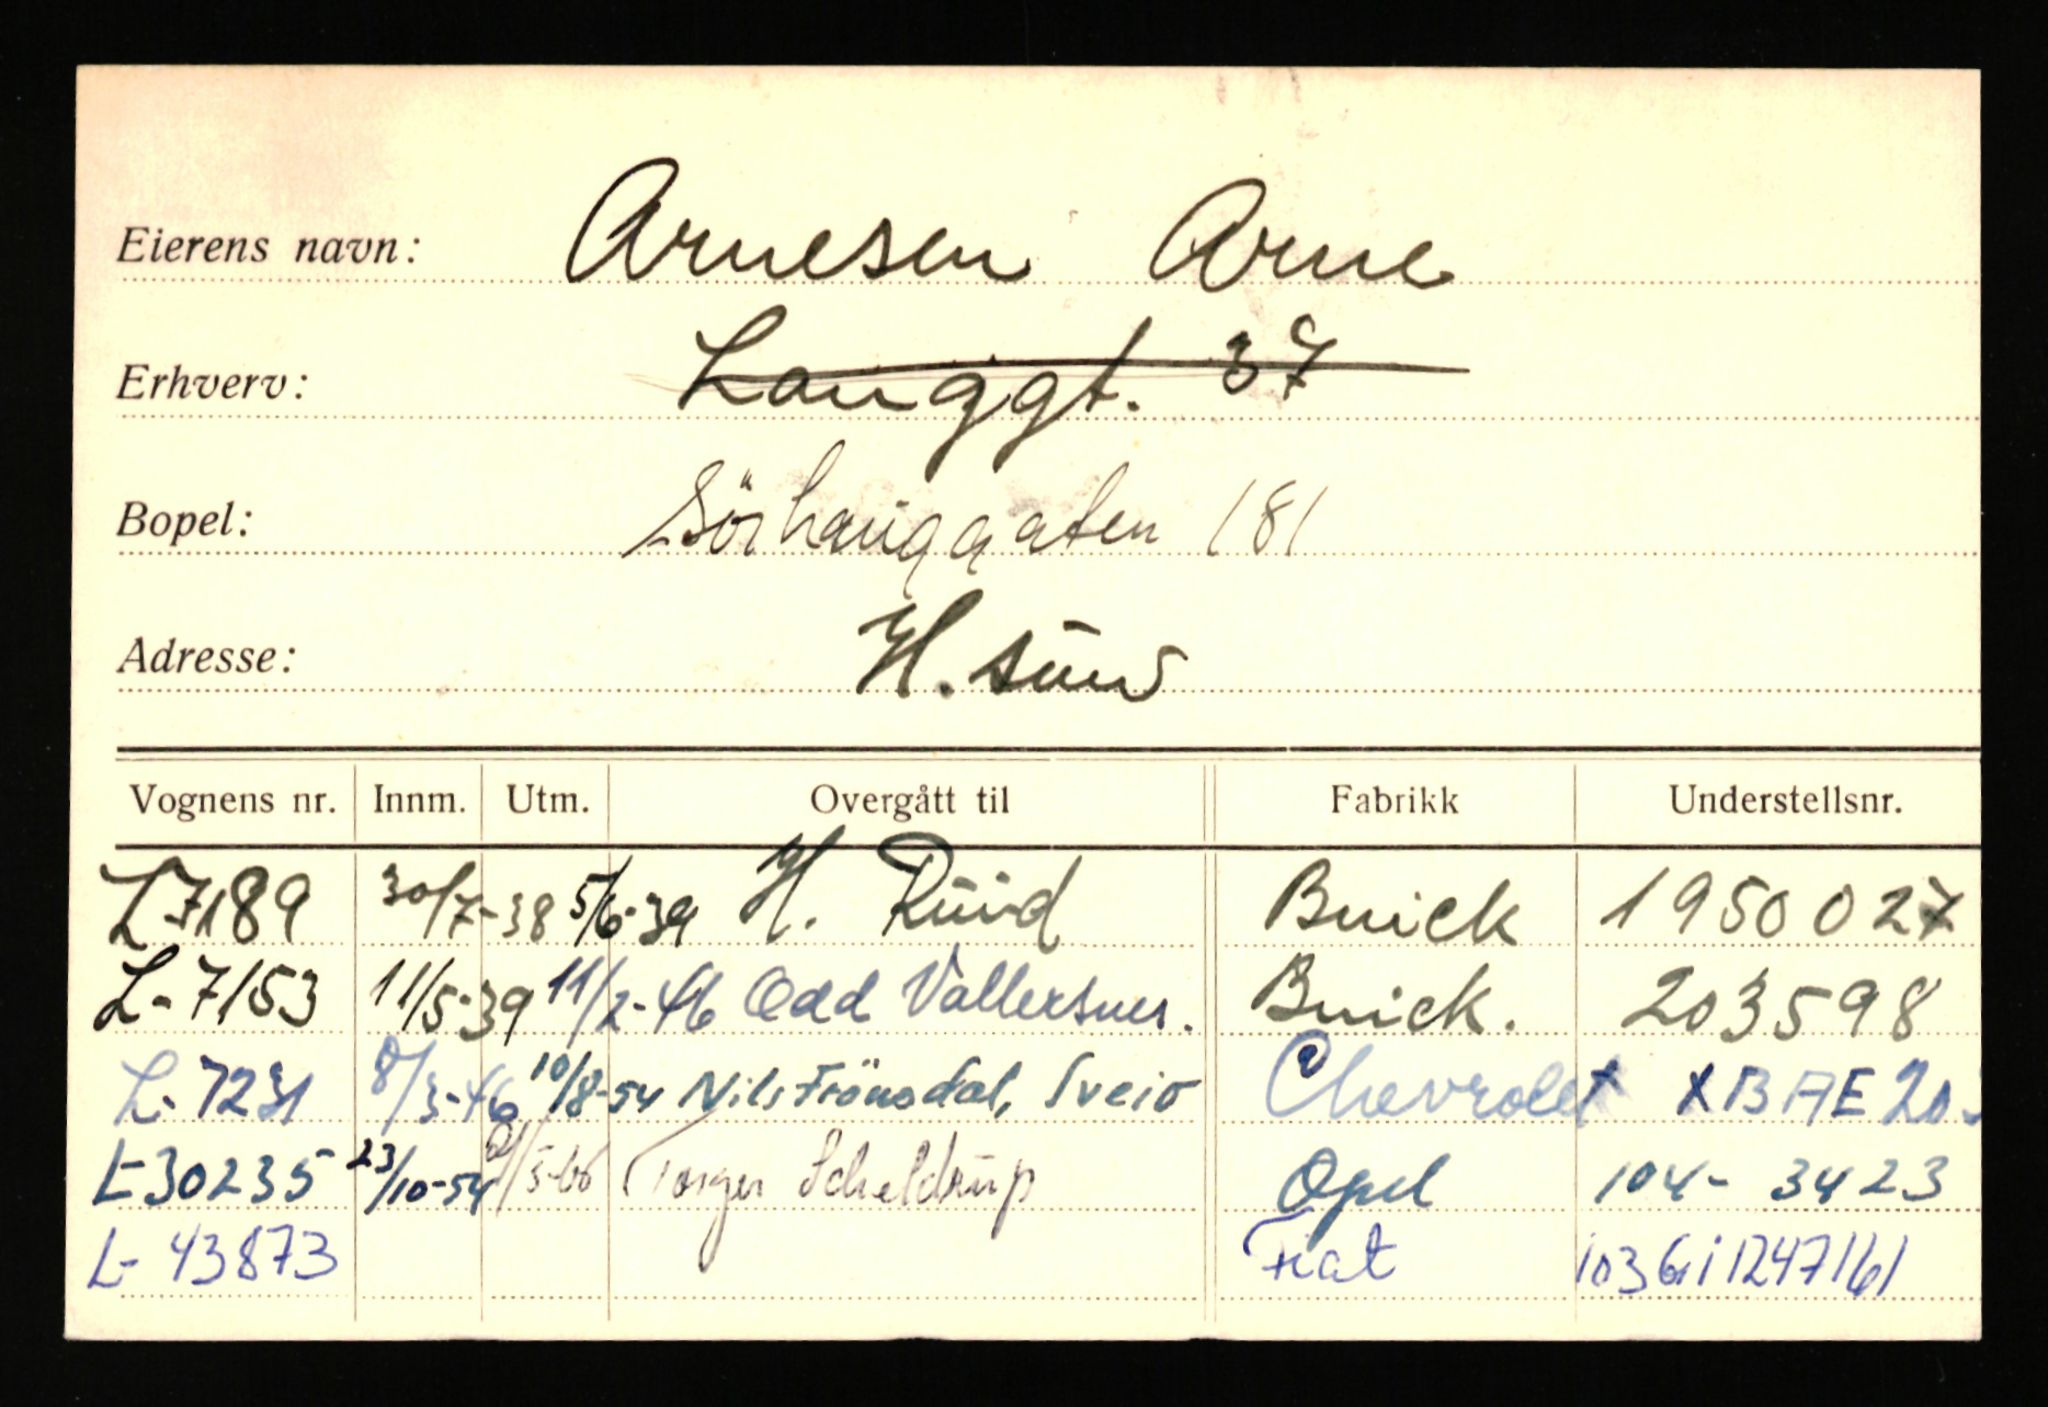 Eierens navn: Arnesen Arne
Erhverv: Langgt. 37
Bopel: Sörhauggaten 181
Adresse: H.sund
Vognens nr. Innm. Utm. Overgått til Fabrikk Understellsnr.
L7189 30/7-38 5/6-39 H. Ruud Buick 1950027
L-7153 11/5-39 11/2-46 Odd Vallersnes. Buick. 203598
L-7231 8/3-46 10/8-54 Nils Frönsdal, Sveio Chevrolet XBAE20
L-30235 23/10-54 Torger Scheldrup Opel 104-3423
L-43873 Fiat